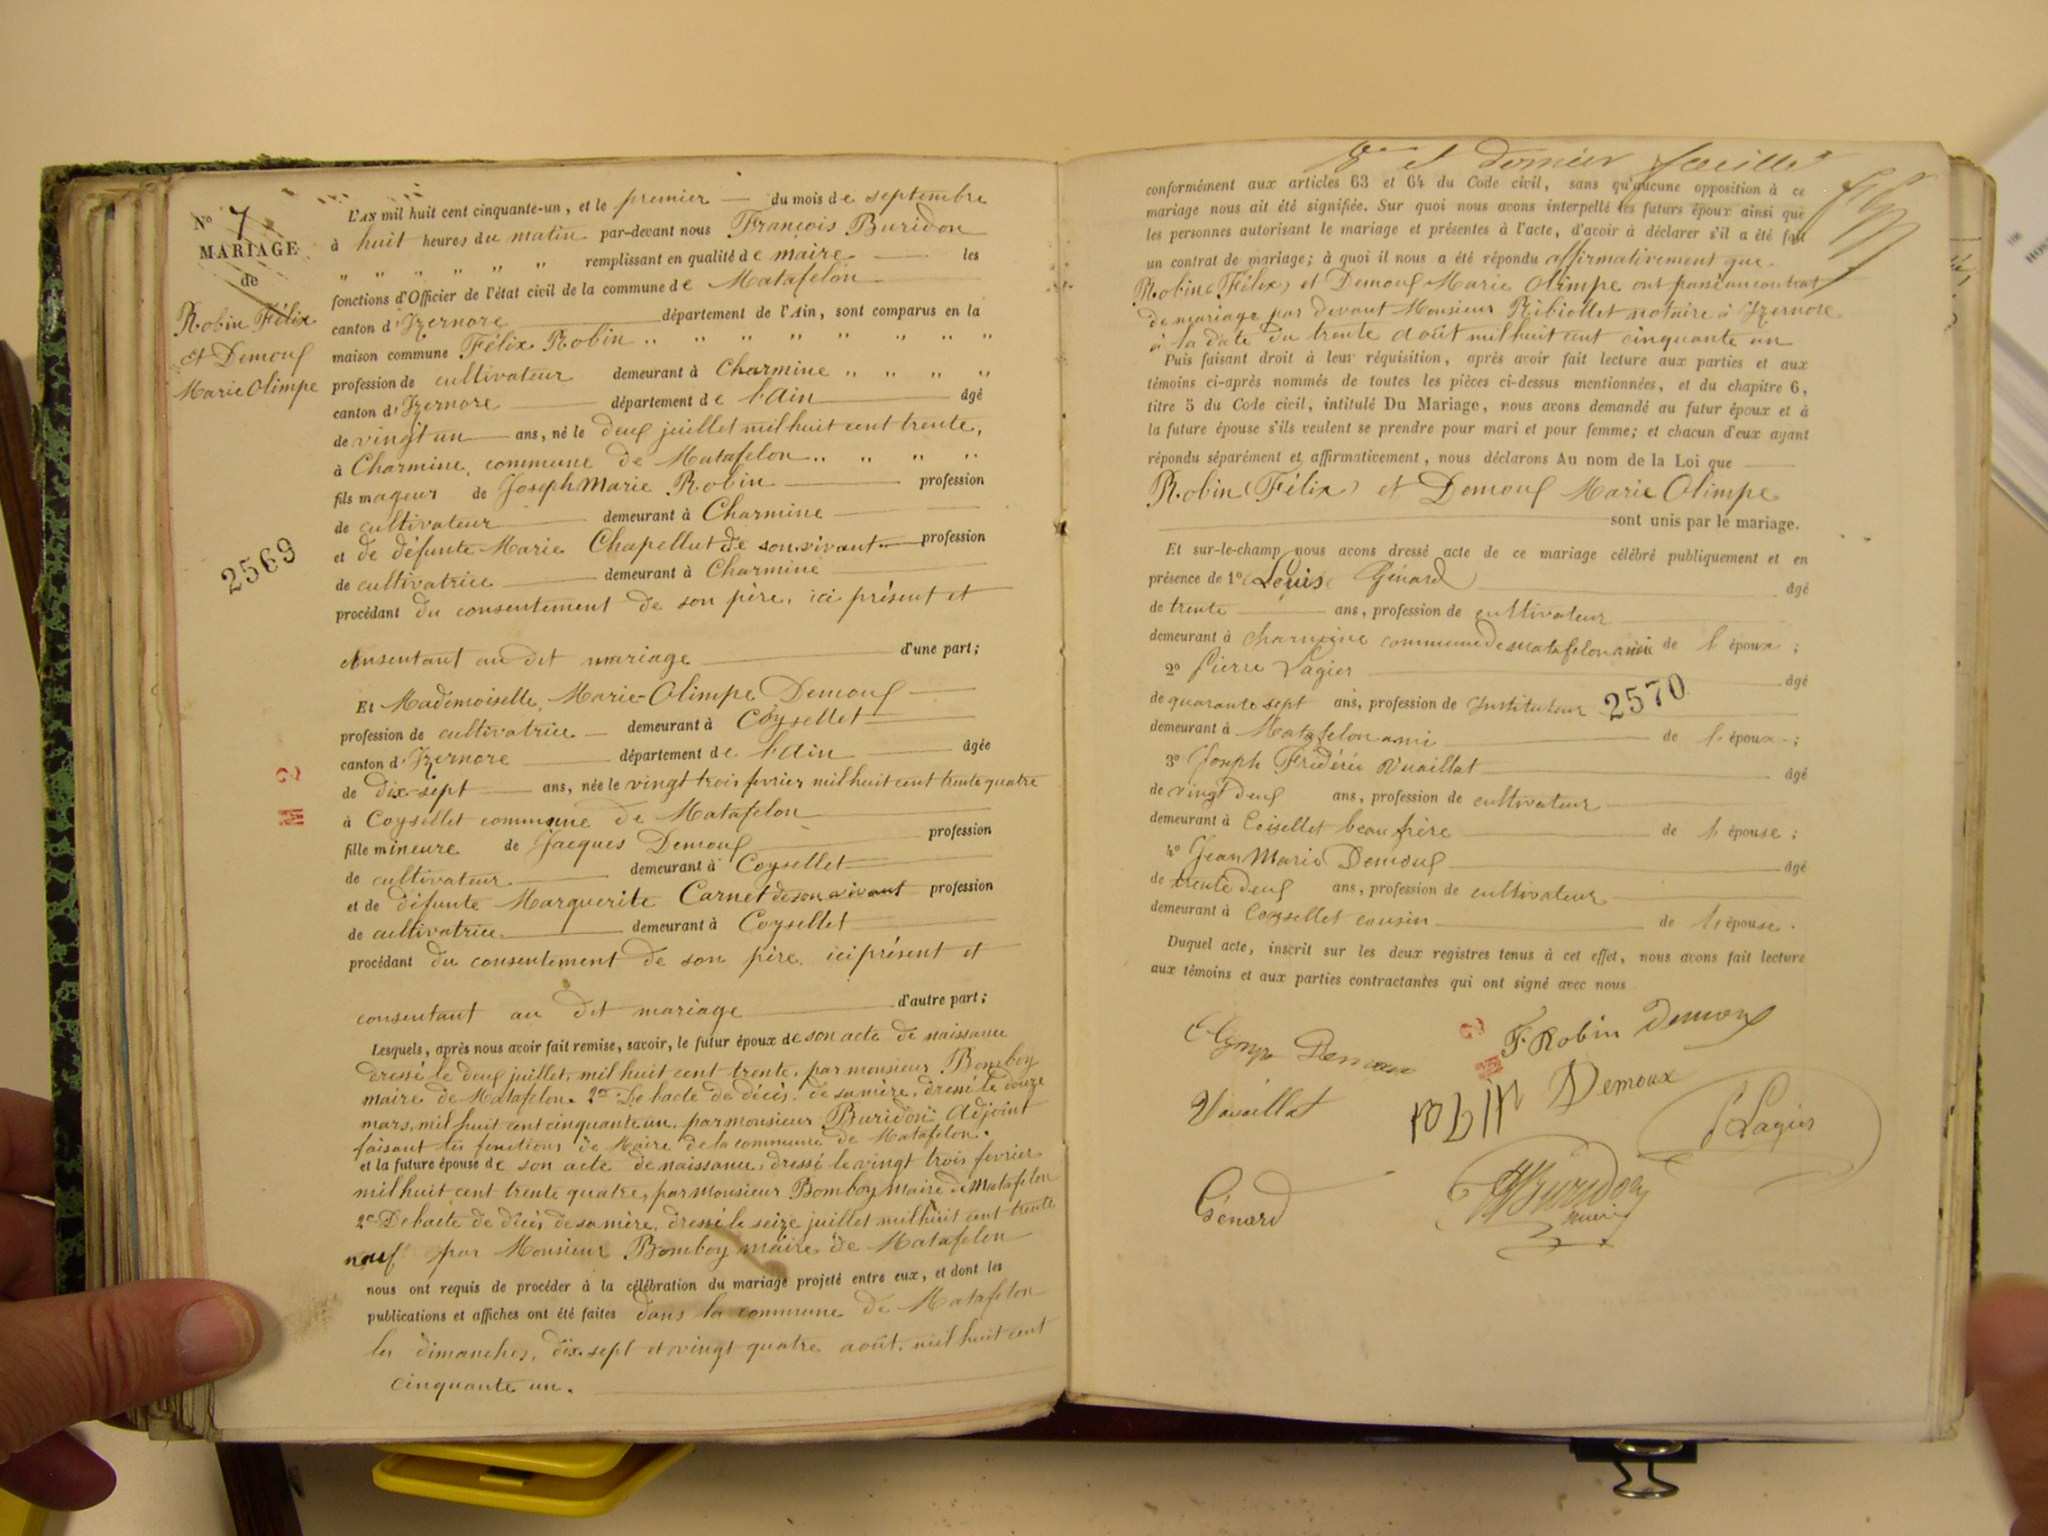 N° 7
MARIAGE
de
Robin Félix
et Demoux
Marie Olimpe
2569
L'AN mil huit cent cinquante-un, et le premier du mois de septembre
à huit heures du matin par-devant nous François Buridon
" " " " " " remplissant en qualité de maire les
fonctions d'Officier de l'état civil de la commune de Matafelon
canton d'Izernore département de l'Ain, sont comparus en la
maison commune Félix Robin " " " " " " " "
profession de cultivateur demeurant à Charmine " " " "
canton d'Izernore département de l'Ain âgé
de vingt un ans, né le deux juillet mil huit cent trente,
à Charmine, commune de Matafelon " " " "
fils mageur de Joseph Marie Robin profession
de cultivateur demeurant à Charmine
et de défunte Marie Chapellut de son vivant profession
de cultivatrice demeurant à Charmine
procédant du consentement de son père, ici présent et
consentant au dit mariage d'une part;
Et Mademoiselle, Marie-Olimpe Demoux
profession de cultivatrice demeurant à Coysellet
canton d'Izernore département de l'Ain âgée
de dix-sept ans, née le vingt trois fevrier mil huit cent trente quatre
à Coysellet commune de Matafelon
fille mineure de Jacques Demoux profession
de cultivateur demeurant à Coysellet
et de défunte Marguerite Carnet de son vivant profession
de cultivatrice demeurant à Coysellet
procédant du consentement de son père, ici présent et
consentant au dit mariage d'autre part;
Lesquels, après nous avoir fait remise, savoir, le futur époux de son acte de naissance
dressé le deux juillet, mil huit cent trente, par monsieur Bomboy
maire de Matafelon. 2° De l'acte de décès, de sa mère, dressé le douze
mars, mil huit cent cinquante un, par monsieur Buridon Adjoint
faisant les fonctions de Maire de la commune de Matafelon.
et la future épouse de son acte de naissance, dressé le vingt trois fevrier
mil huit cent trente quatre, par Monsieur Bomboy maire de Matafelon
2° De l'acte de décès de sa mère, dressé le seize juillet mil huit cent trente
neuf par Monsieur Bomboy maire de Matafelon
nous ont requis de procéder à la célébration du mariage projeté entre eux, et dont les
publications et affiches ont été faites dans la commune de Matafelon
les dimanches, dix-sept et vingt quatre août, mil huit cent
cinquante un.
8me et dernier feuillet
conformément aux articles 63 et 64 du Code civil, sans qu'aucune opposition à ce
mariage nous ait été signifiée. Sur quoi nous avons interpellé les futurs époux ainsi que
les personnes autorisant le mariage et présentes à l'acte, d'avoir à déclarer s'il a été fait
un contrat de mariage; à quoi il nous a été répondu affirmativement que
Robin (Félix) et Demoux Marie Olimpe ont passé un contrat
de mariage par devant Monsieur Ribiollet notaire à Izernore
à la date du trente août mil huit cent cinquante un
Puis faisant droit à leur réquisition, après avoir fait lecture aux parties et aux
témoins ci-après nommés de toutes les pièces ci-dessus mentionnées, et du chapitre 6,
titre 5 du Code civil, intitulé Du Mariage, nous avons demandé au futur époux et à
la future épouse s'ils veulent se prendre pour mari et pour femme; et chacun d'eux ayant
répondu séparément et affirmativement, nous déclarons Au nom de la Loi que
Robin (Félix) et Demoux Marie Olimpe
sont unis par le mariage.
Et sur-le-champ nous avons dressé acte de ce mariage célébré publiquement et en
présence de 1° Louis Génard âgé
de trente ans, profession de cultivateur
demeurant à Charmine commune de Matafelon ami de l'époux;
2° Pierre Lagier âgé
de quarante sept ans, profession de Instituteur 2570
demeurant à Matafelon ami de l'époux;
3° Joseph Frédéric Vuaillat âgé
de vingt deux ans, profession de cultivateur
demeurant à Coisellet beau frère de l'épouse;
4° Jean Marie Demoux âgé
de trente deux ans, profession de cultivateur
demeurant à Coysellet cousin de l'épouse.
Duquel acte, inscrit sur les deux registres tenus à cet effet, nous avons fait lecture
aux témoins et aux parties contractantes qui ont signé avec nous
Demoux
F. Robin
Demoux
Vuaillat
Demoux
P Lagier
Génard
Buridon
maire